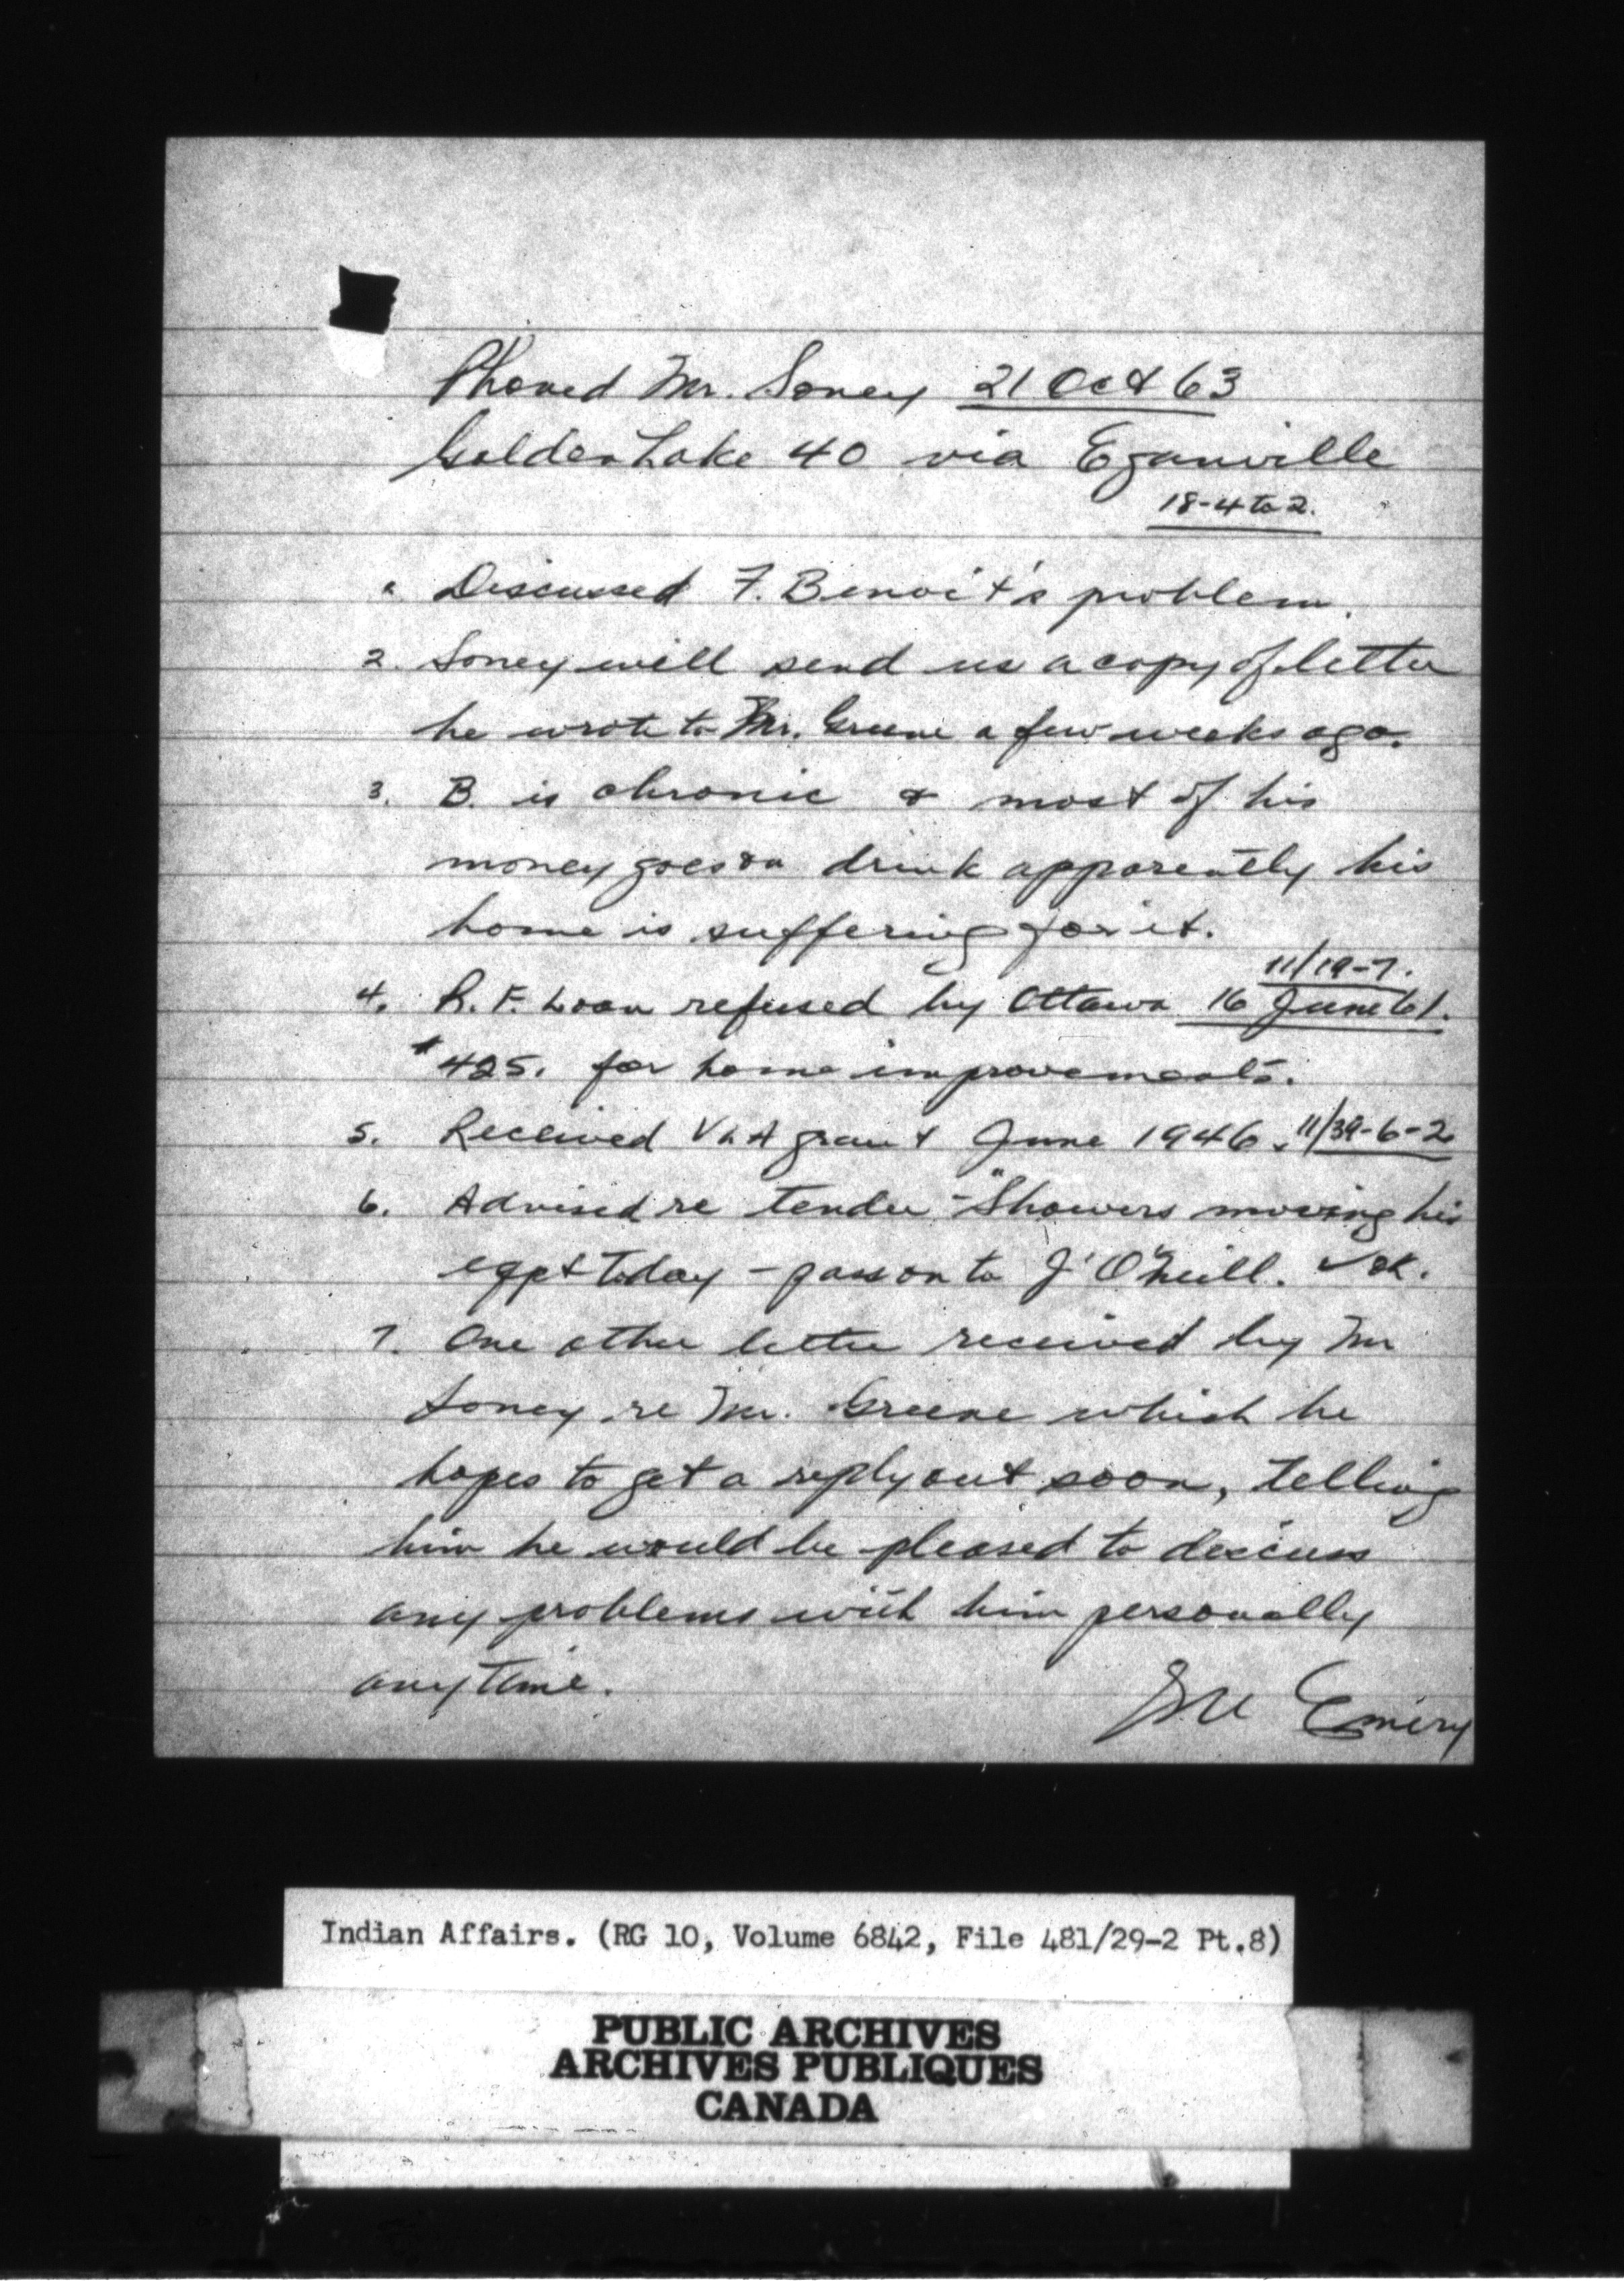 Phoned Mr. Soney 21 Oct 63
Golden Lake 40 via Eganville
18-4 to 2.
Discussed F. Benoit's problem.
2. Soney will send us a copy of letter
he wrote to Mr. Greene a few weeks ago.
3. B. is chronic & most of his
money goes on drink apparently his
home is suffering for it.
11/19-7.
4. R.F. Loan refused by Ottawa 16 June 61.
$425. for home improvements.
5. Received VLA grant June 1946. 11/39-6-2
6. Advised re tender - "Showers moving his
eqpt today - pass on to J O'Neill. ✓ OK.
7. One other letter received by Mr
Soney re Mr. Greene which he
hopes to get a reply out soon, telling
him he would be pleased to discuss
any problems with him personally
anytime.
Emery
Indian Affairs. (RG 10, Volume 6842, File 481/29-2 Pt.8)
PUBLIC ARCHIVES
ARCHIVES PUBLIQUES
CANADA